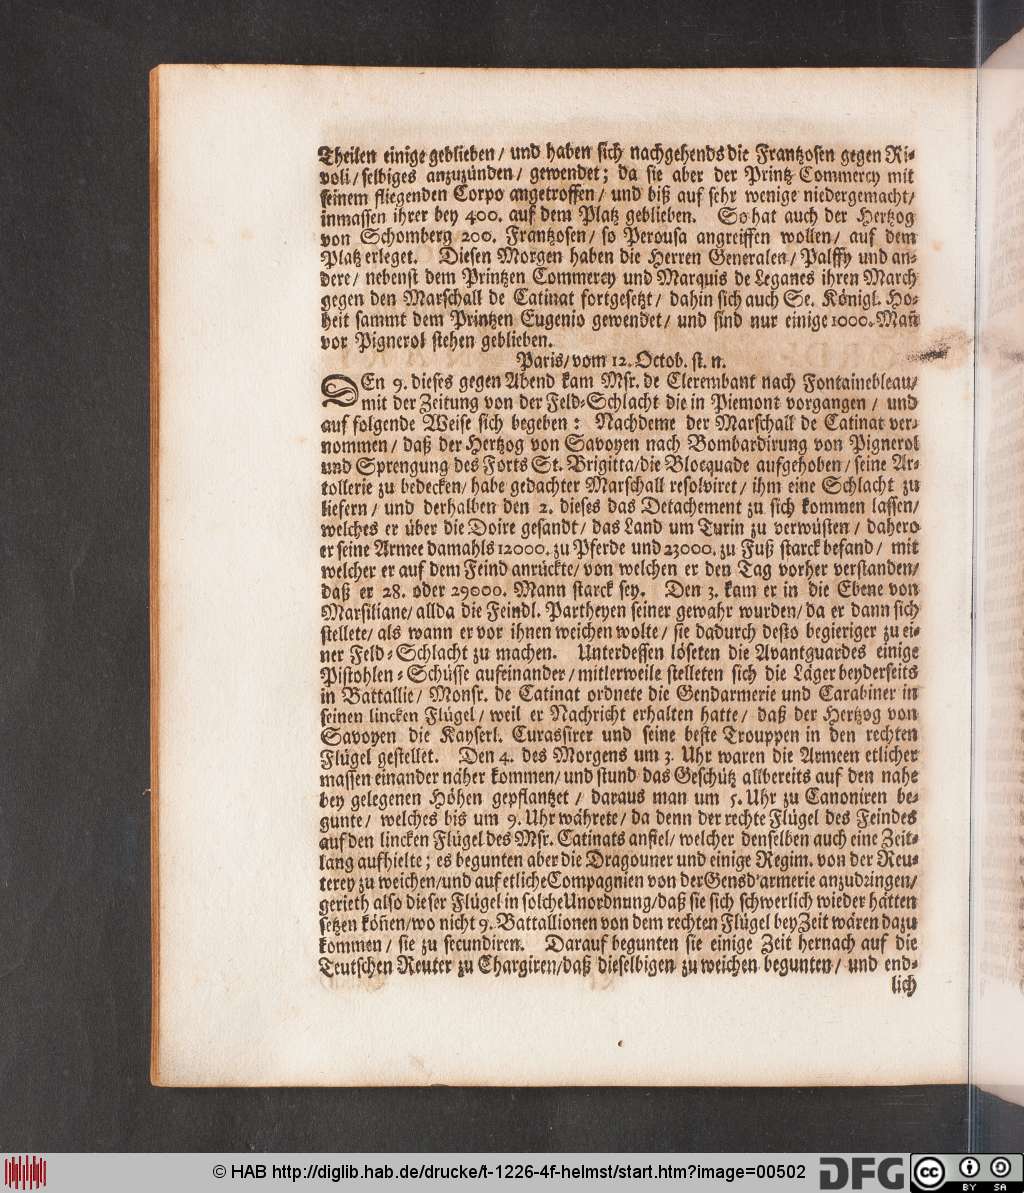 Theilen einige geblieben/ und haben sich nachgehends die Frantzosen gegen Ri-
voli/ selbiges anzuzünden/ gewendet; da sie aber der Printz Commercy mit
seinem fliegenden Corpo angetroffen/ und biß auf sehr wenige niedergemacht/
inmassen ihrer bey 400. auf dem Platz geblieben. So hat auch der Hertzog
von Schomberg 200. Frantzosen/ so Perousa angreiffen wollen/ auf dem
Platz erleget. Diesen Morgen haben die Herren Generalen/ Palffy und an-
dere/ nebenst dem Printzen Commercy und Marquis de Leganes ihren March
gegen den Marschall de Catinat fortgesetzt/ dahin sich auch Se. Königl. Ho-
heit sammt dem Printzen Eugenio gewendet/ und sind nur einige 1000. Mañ
vor Pignerol stehen geblieben.
Paris/ vom 12. Octob. st. n.
DEn 9. dieses gegen Abend kam Msr. de Clerembant nach Fontainebleau/
mit der Zeitung von der Feld-Schlacht die in Piemont vorgangen/ und
auf folgende Weise sich begeben: Nachdeme der Marschall de Catinat ver-
nommen/ daß der Hertzog von Savoyen nach Bombardirung von Pignerol
und Sprengung des Forts St. Brigitta/ die Blocquade aufgehoben/ seine Ar-
tollerie zu bedecken/ habe gedachter Marschall resolviret/ ihm eine Schlacht zu
liefern/ und derhalben den 2. dieses das Detachement zu sich kommen lassen/
welches er über die Doire gesandt/ das Land um Turin zu verwüsten/ dahero
er seine Armee damahls 12000. zu Pferde und 23000. zu Fuß starck befand/ mit
welcher er auf dem Feind anrückte/ von welchen er den Tag vorher verstanden/
daß er 28. oder 29000. Mann starck sey. Den 3. kam er in die Ebene von
Marsiliane/ allda die Feindl. Partheyen seiner gewahr wurden/ da er dann sich
stellete/ als wann er vor ihnen weichen wolte/ sie dadurch desto begieriger zu ei-
ner Feld-Schlacht zu machen. Unterdessen löseten die Avantguardes einige
Pistohlen-Schüsse aufeinander/ mitlerweile stelleten sich die Läger beyderseits
in Battallie/ Monsr. de Catinat ordnete die Gendarmerie und Carabiner in
seinen lincken Flügel/ weil er Nachricht erhalten hatte/ daß der Hertzog von
Savoyen die Kayserl. Curassirer und seine beste Trouppen in den rechten
Flügel gestellet. Den 4. des Morgens um 3. Uhr waren die Armeen etlicher
massen einander näher kommen/ und stund das Geschütz allbereits auf den nahe
bey gelegenen Höhen gepflantzet/ daraus man um 5. Uhr zu Canoniren be-
gunte/ welches bis um 9. Uhr währete/ da denn der rechte Flügel des Feindes
auf den lincken Flügel des Msr. Catinats anfiel/ welcher denselben auch eine Zeit-
lang aufhielte; es begunten aber die Dragouner und einige Regim. von der Reu-
terey zu weichen/ und auf etliche Compagnien von der Gensd'armerie anzudringen/
gerieth also dieser Flügel in solche Unordnung/ daß sie sich schwerlich wieder hätten
setzen köñen/ wo nicht 9. Battallionen von dem rechten Flügel bey Zeit wären dazu
kommen/ sie zu secundiren. Darauf begunten sie einige Zeit hernach auf die
Teutschen Reuter zu Chargiren/ daß dieselbigen zu weichen begunten/ und end-
lich
© HAB http://diglib.hab.de/drucke/t-1226-4f-helmst/start.htm?image=00502
DFG
cc BY SA